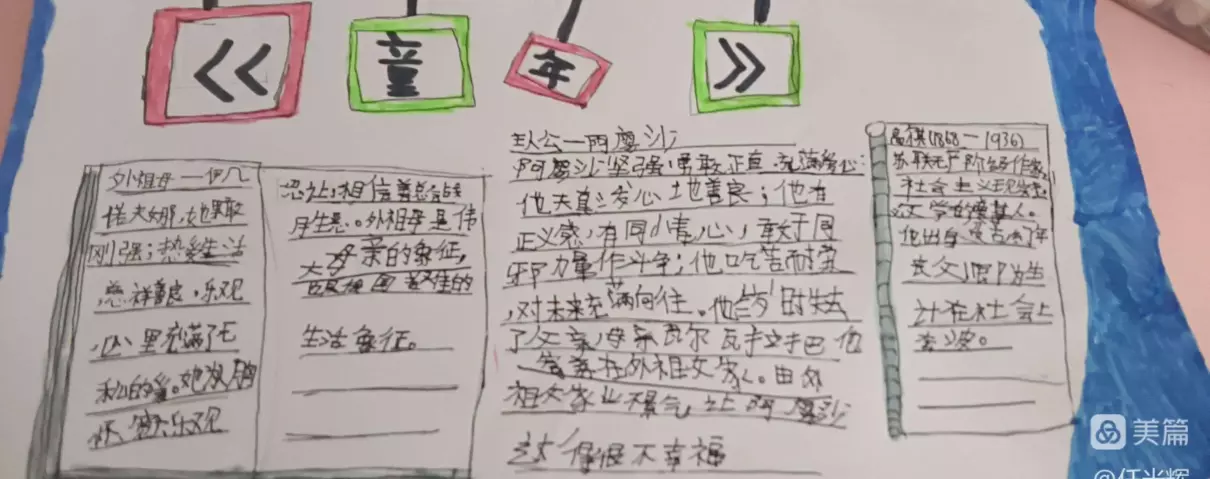 《童年》
外祖母一
诺夫娜,她果敢
刚强;热爱生活
慈祥善良,乐观
心里充满了无
私的爱。她
乐观
相信善总会战
外祖母是伟
大母亲的象征,
的
生活象征。
主人公一阿廖沙
阿廖沙坚强勇敢正直充满爱心:
他天真心地善良;他有
正义感,有同情心,敢于同
邪力量作斗争;他吃苦耐劳
,对未来充满向往。他岁时失去
了父亲,母亲瓦尔瓦拉他
在外祖父家。由外
祖父家业阿廖沙
过得很不幸福
(1868一1936)
苏联无产阶级作家,
社会主义现实主
义文学奠基人。
他出身
丧父,
计在社会上
奔波。
美篇
@任光辉